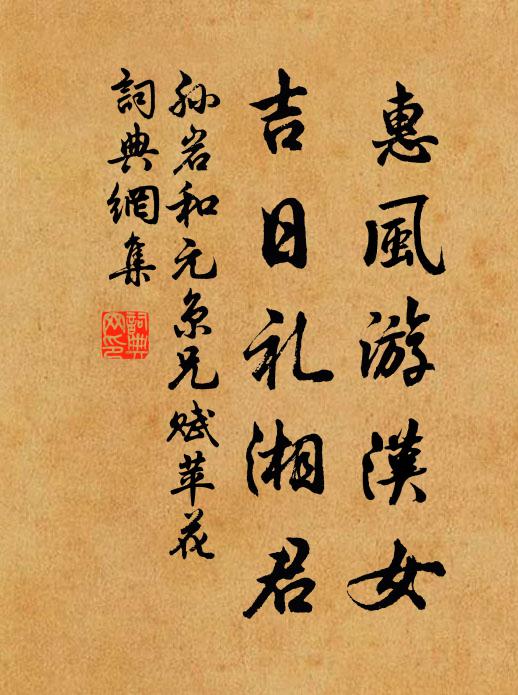 惠風游漢女
吉日礼湘君
孙岩和元京兄赋苹花
詞典網集
詞典网印